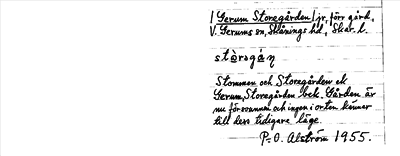 / Gerum Storegården / jr, förr gård,
V. Gerums sn, Skånings hd, Skar. l.
stòrəgáɳ
Stommen och Storegården ell
Gerum, Storegården bek. Gården är
nu försvunnen och ingen i orten känner
till dess tidigare läge.
P.O. Alström 1955.